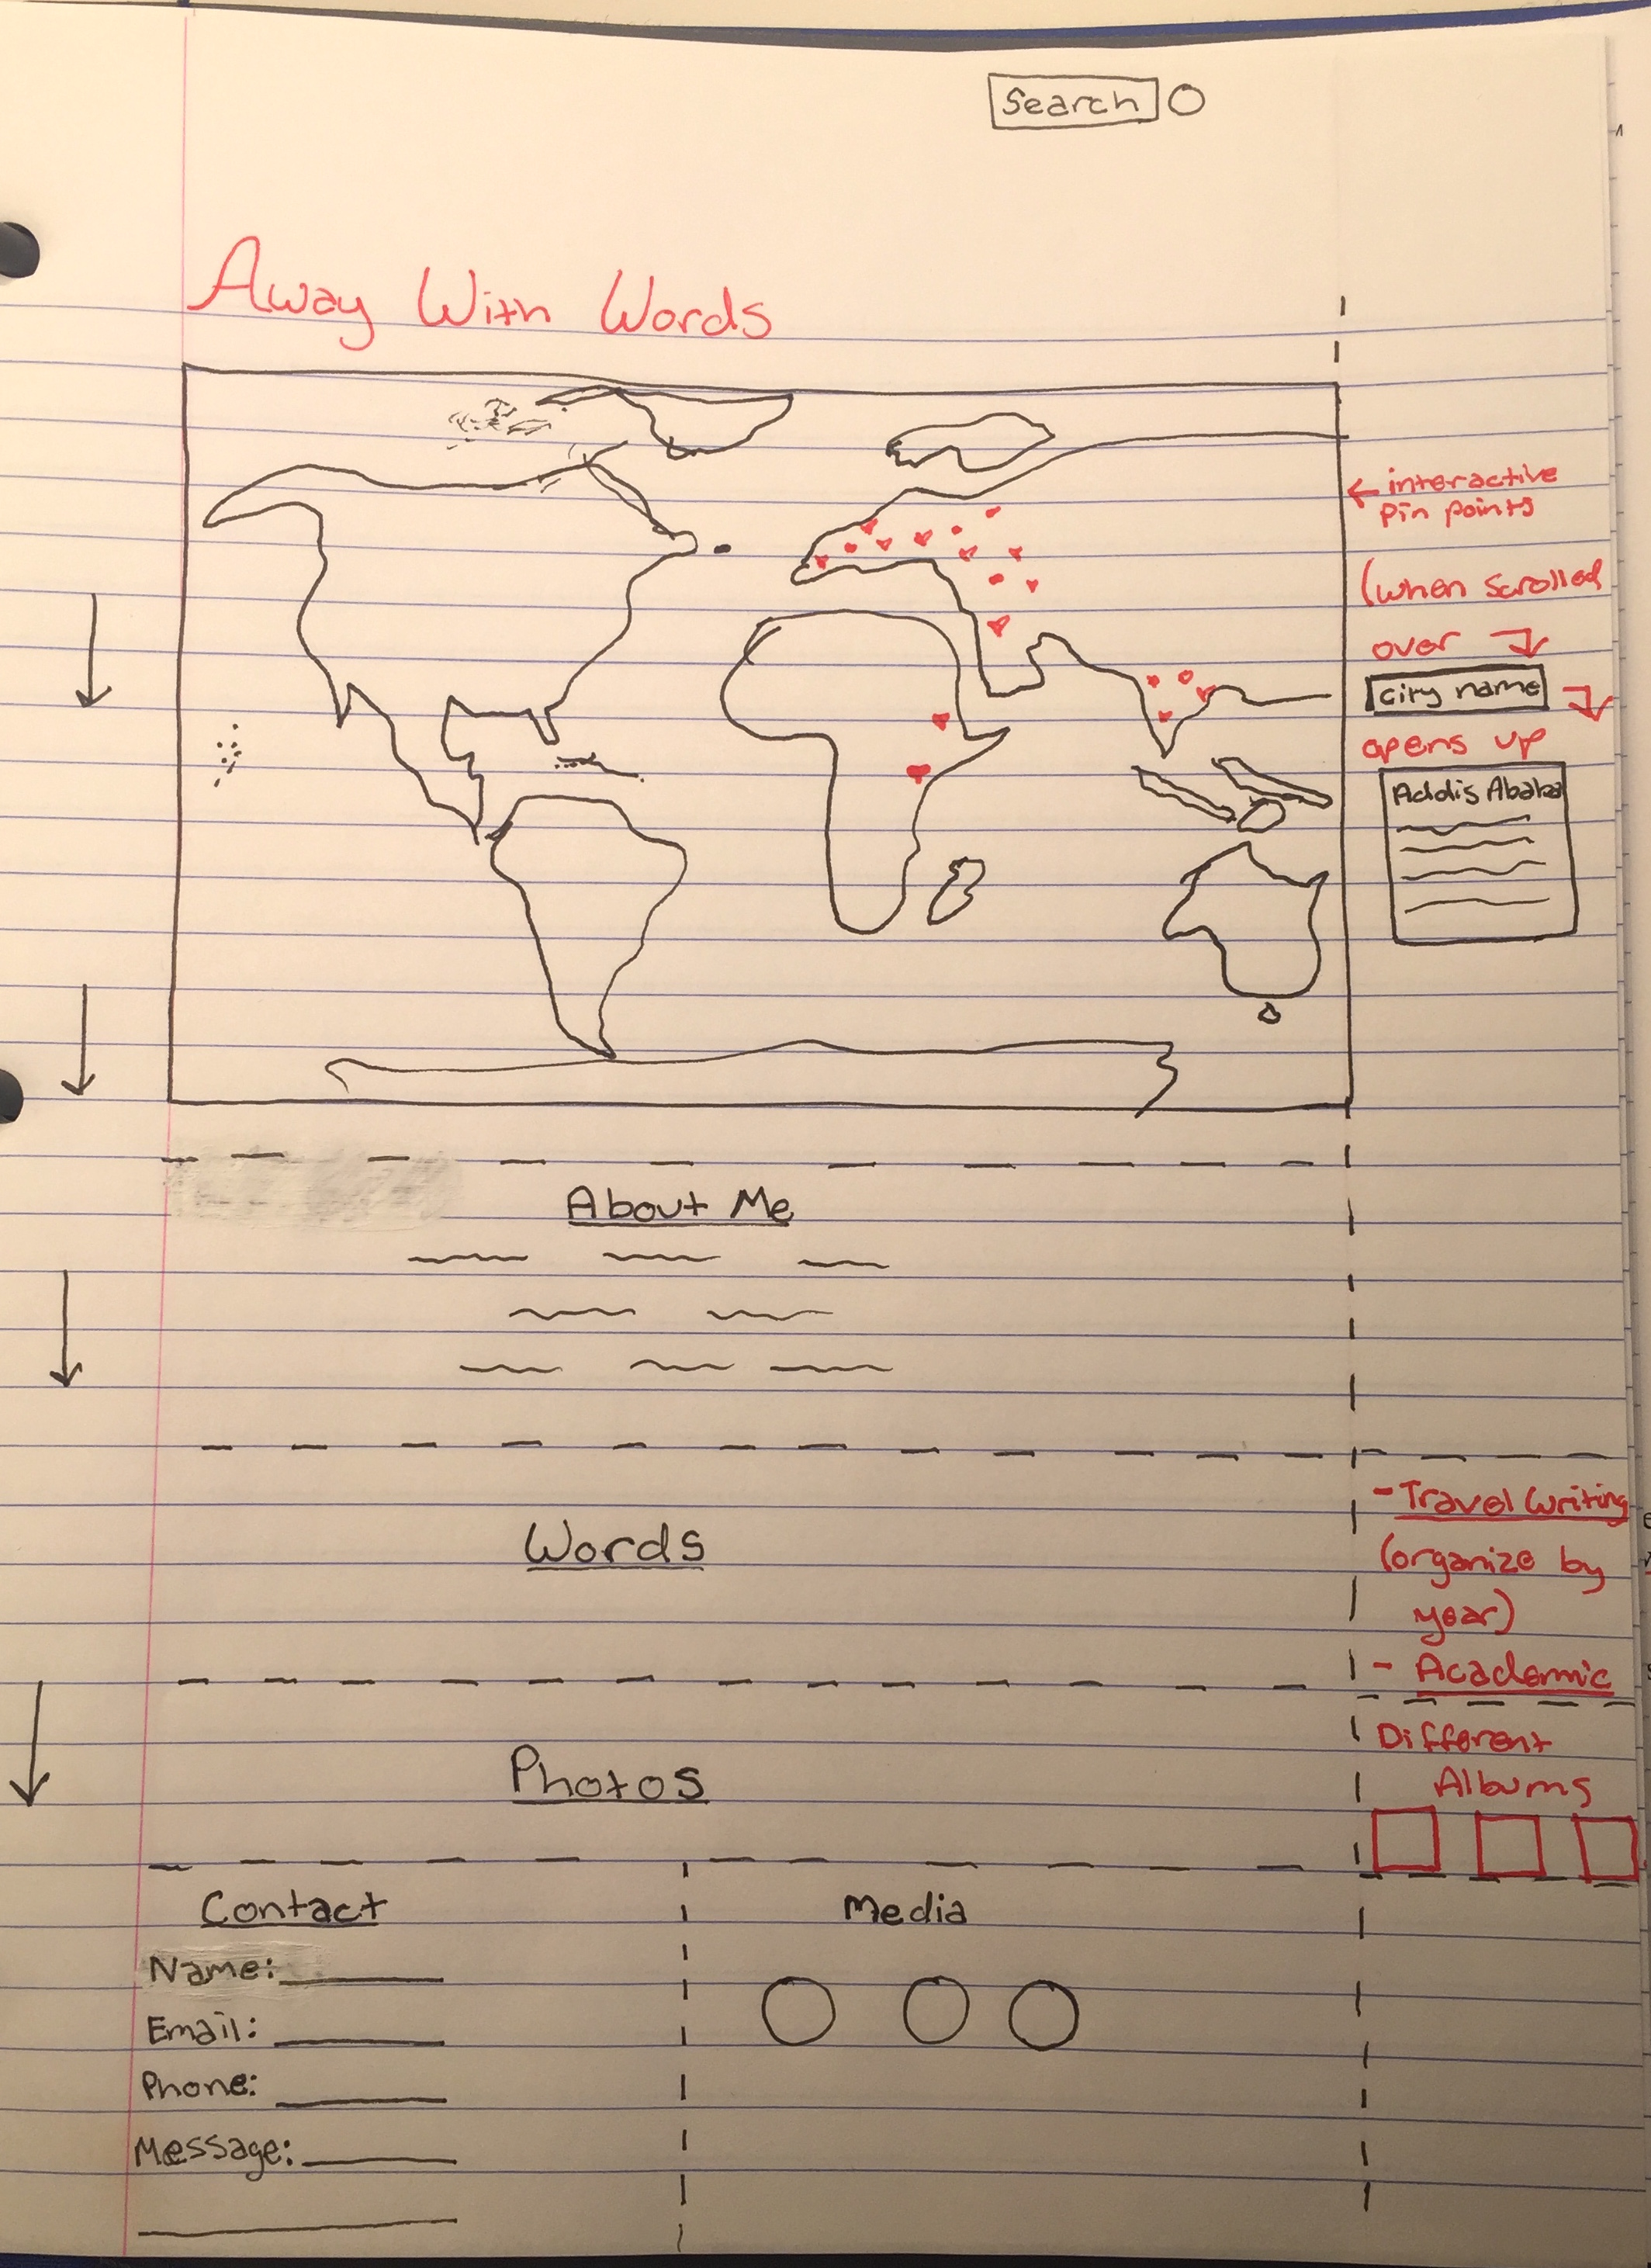 Search
Away With Words
← interactive
pin points
(when scrolled
over
city name
opens up
Addis Ababa
About Me
Words
- Travel Writing
(organize by
year)
- Academic
Photos
Different
Albums
Contact
Media
Name:
Email:
Phone:
Message: